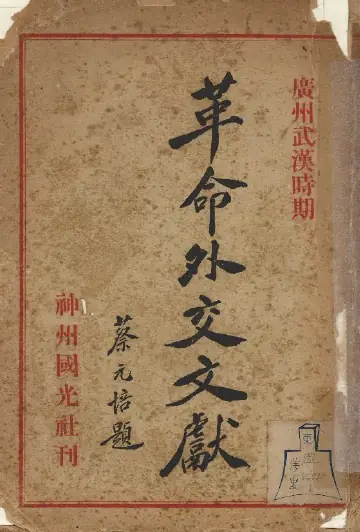 廣州武漢時期
革命外交文獻
蔡元培題
神州國光社刊